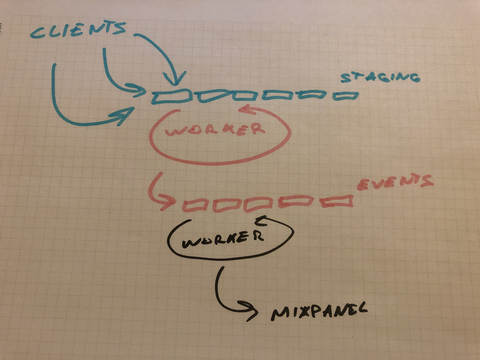 CLIENTS
STAGING
WORKER
EVENTS
WORKER
MIXPANEL